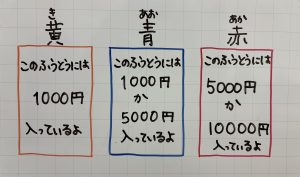 き
黄
このふうとうには
1000円
入っているよ
あお
青
このふうとうには
1000円
か
5000円
入っているよ
あか
赤
このふうとうには
5000円
か
10000円
入っているよ